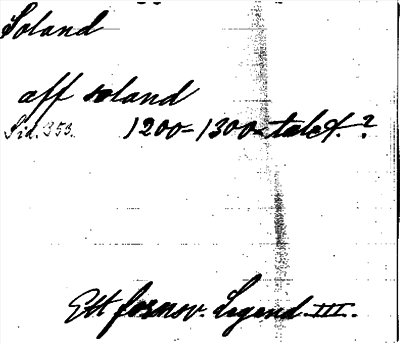 Soland
aff soland
Sid. 353. 1200-1300-talet.?
Ett fornsv. Legend. III.